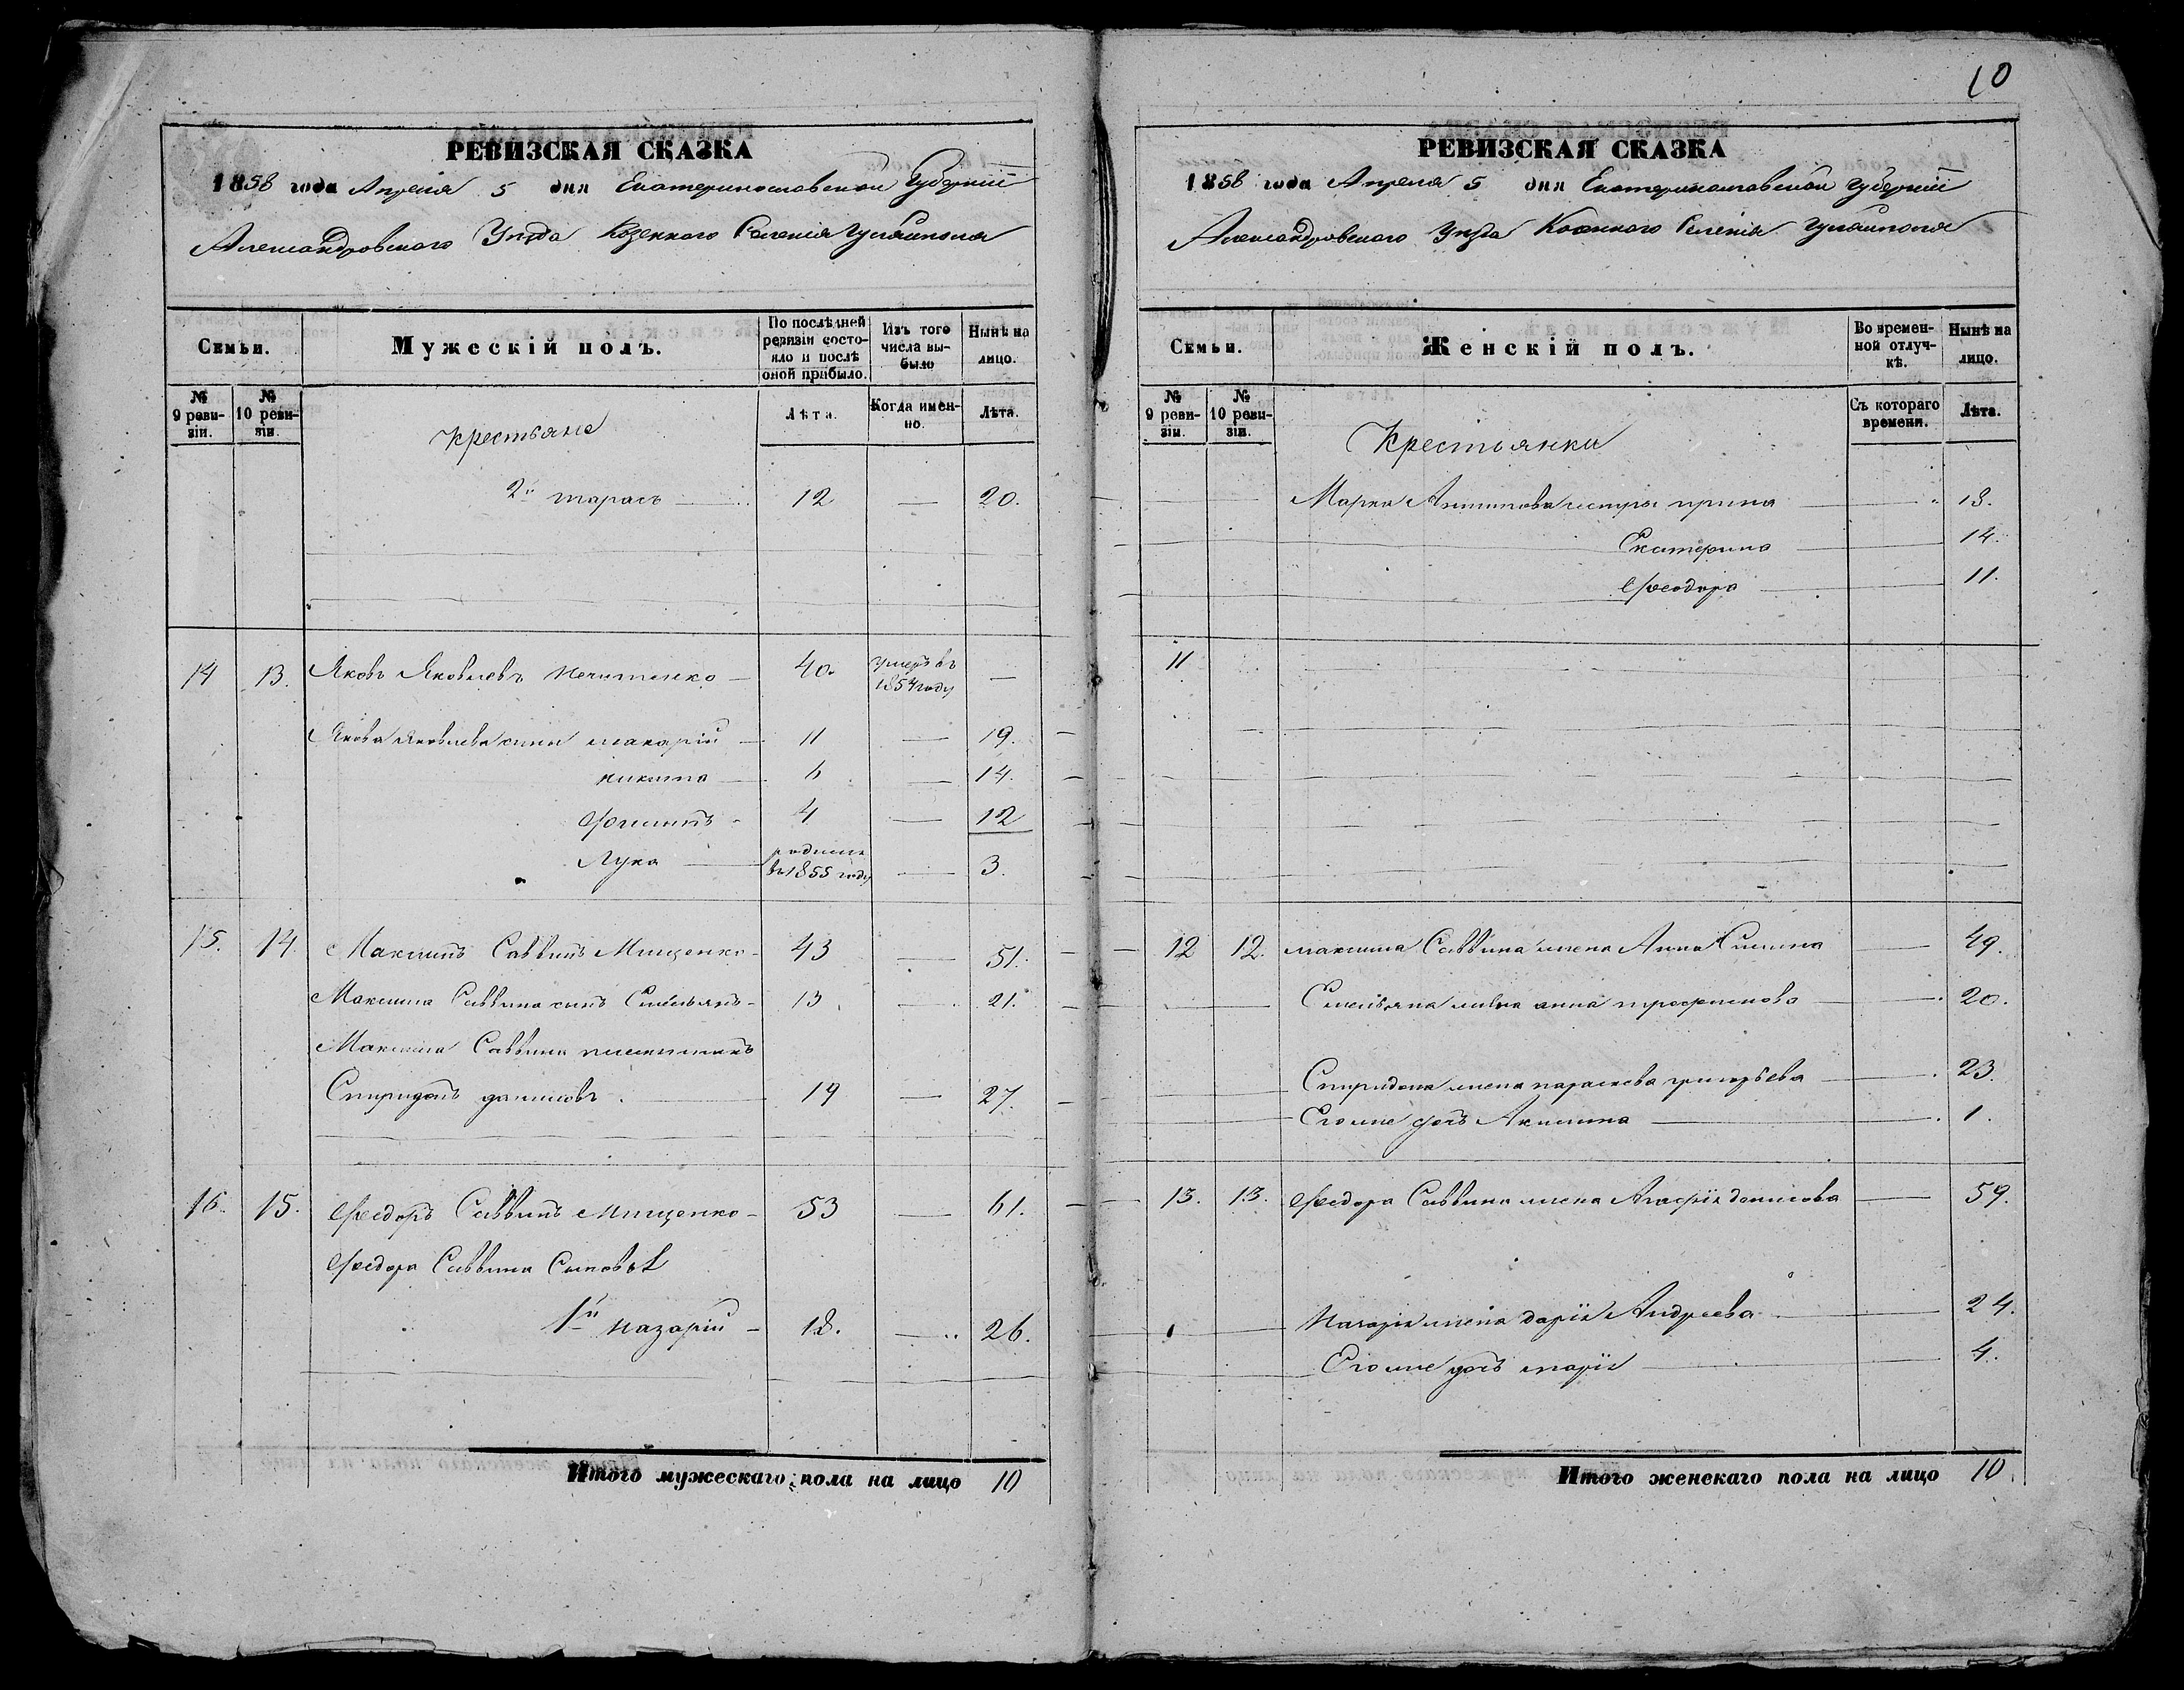 10
РЕВИЗСКАЯ СКАЗКА
1858 года Апреля 5 дня Екатеринославской Губерніи
Александровского Уезда Казенного Селенія Гуляйполя
Семьи.
Мужескій полъ.
По послѣдней ревизіи состояло и послѣ оной прибыло.
Изъ того числа выбыло
Нынѣ на лицо.
№ 9 ревизіи.
№ 10 ревизіи.
Лѣта.
Когда именно.
Лѣта.
Крестьяне
2й Тарасъ — 12 — 20.
14 13. Яковъ Яковлевъ Нечитенко — 40. умеръ въ 1854 году —
Якова Яковлева сыны Макарій — 11 — 19.
Никита — 6 — 14.
Филипъ - 4 — 12
Лука — родился въ 1855 году — 3.
15. 14. Максимъ Саввинъ Мищенко - 43 — 51.
Максима Саввина сынъ Емельянъ - 13. — 21.
Максима Саввина племянникъ
Спиридонъ даниловъ. — 19 — 27.
16. 15. Федоръ Саввинъ Мищенко - 53 — 61.
Федора Саввина Сыновья
1й Назарій - 18. — 26.
Итого мужескаго пола на лицо 10
РЕВИЗСКАЯ СКАЗКА
1858 года Апреля 5 дня Екатеринославской Губерніи
Александровского Уезда Казенного Селенія Гуляйполя
Семьи.
Женскій полъ.
Во временной отлучкѣ.
Нынѣ на лицо.
№ 9 ревизіи.
№ 10 ревизіи.
Съ котораго времени.
Лѣта.
Крестьянки
Марка Антипова сестры ирина — 18.
Екатерина — 14.
Феодора — 11.
11
12 12. максима Саввина жена Анна — 49.
Емельяна жена анна трофимова — 20.
Спиридона жена параскева григорьева — 23.
Его же дочь Акилина — 1.
13. 13. Федора Саввина жена Агафія данилова — 59.
Назарія жена дарія Андреева — 24.
Его же дочь марія — 4.
Итого женскаго пола на лицо 10.